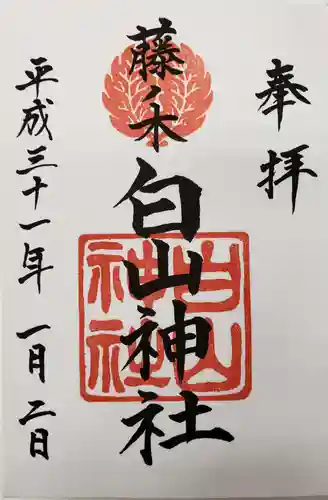 奉拝
藤ノ木
白山神社
平成三十一年 一月二日
白山神社